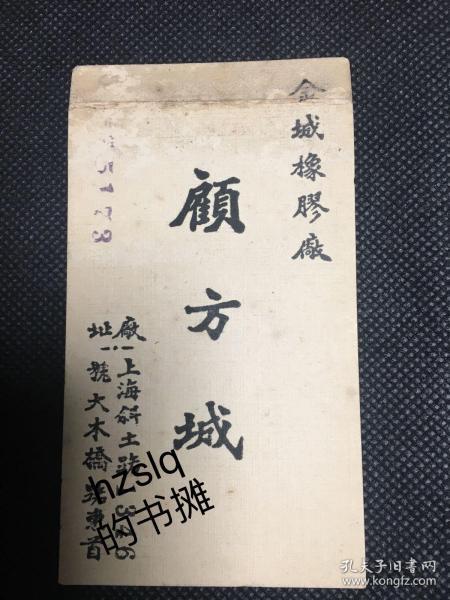 金城橡膠廠
顧方城
廠址：上海斜土路
號大木橋
hzslq
的书摊
孔夫子旧书网
www.kongfz.com